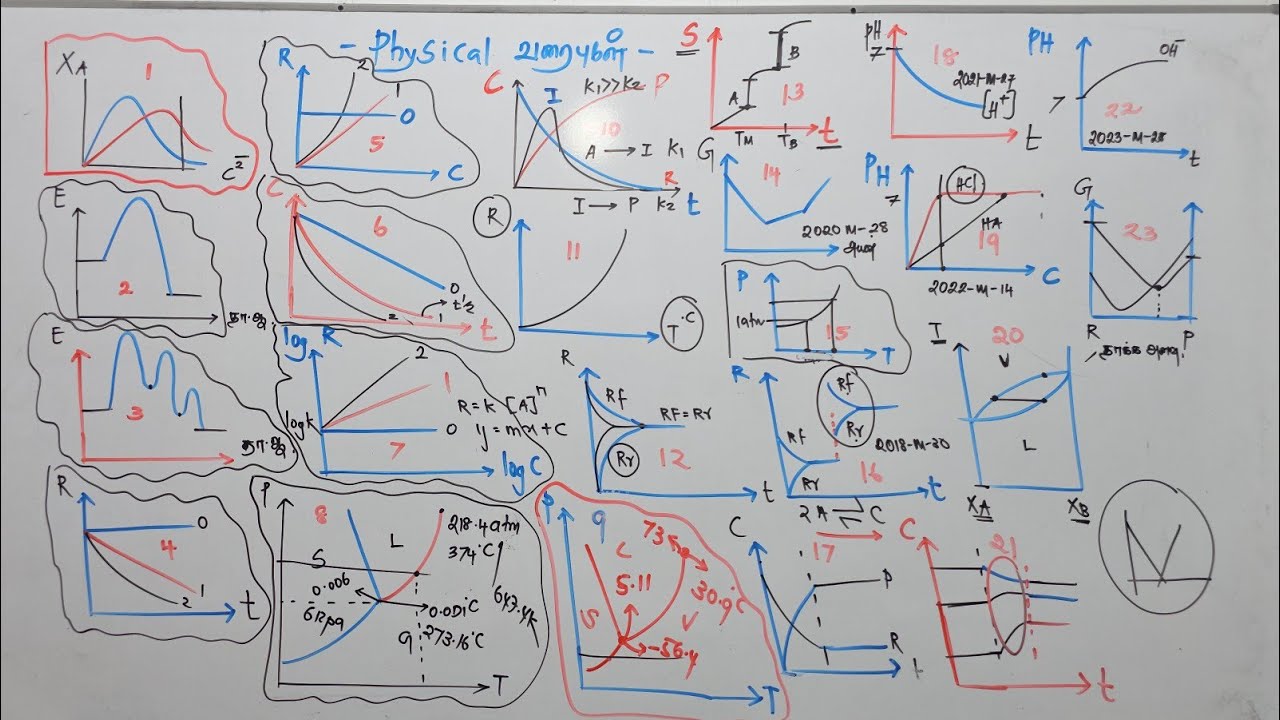 - Physical வரைபுகள் -
XA
1
C²⁻
R
2
1
0
5
C
C
K1>>K2
P
I
10
A → I K1
R
I → P K2
t
S
A
B
13
TM
TB
t
PH
7
18
2021-M-27
[H+]
t
PH
OH⁻
7
22
2023-M-28
t
E
2
தா.அ
C
6
0
t½
2
1
t
R
11
T °C
G
14
2020 M-28
PH
7
HCl
HA
19
C
2022-M-14
G
23
R
P
P
1atm
15
T
E
3
தா.அ
log R
2
1
R=k [A]ⁿ
0
y=mx+C
logk
7
log C
R
Rf
RF=Rr
Rr
12
t
R
Rf
Rr
Rf
Rr
2018-M-30
16
t
2A ⇌ C
I
20
V
L
XA
XB
R
0
4
1
2
t
P
8
L
218.4atm
374°C
S
0.006
0.001°C
273.16°C
647.4k
9
T
P
9
L
73
5.11
30.9°C
S
V
-56.4
T
C
17
P
R
t
C
21
t